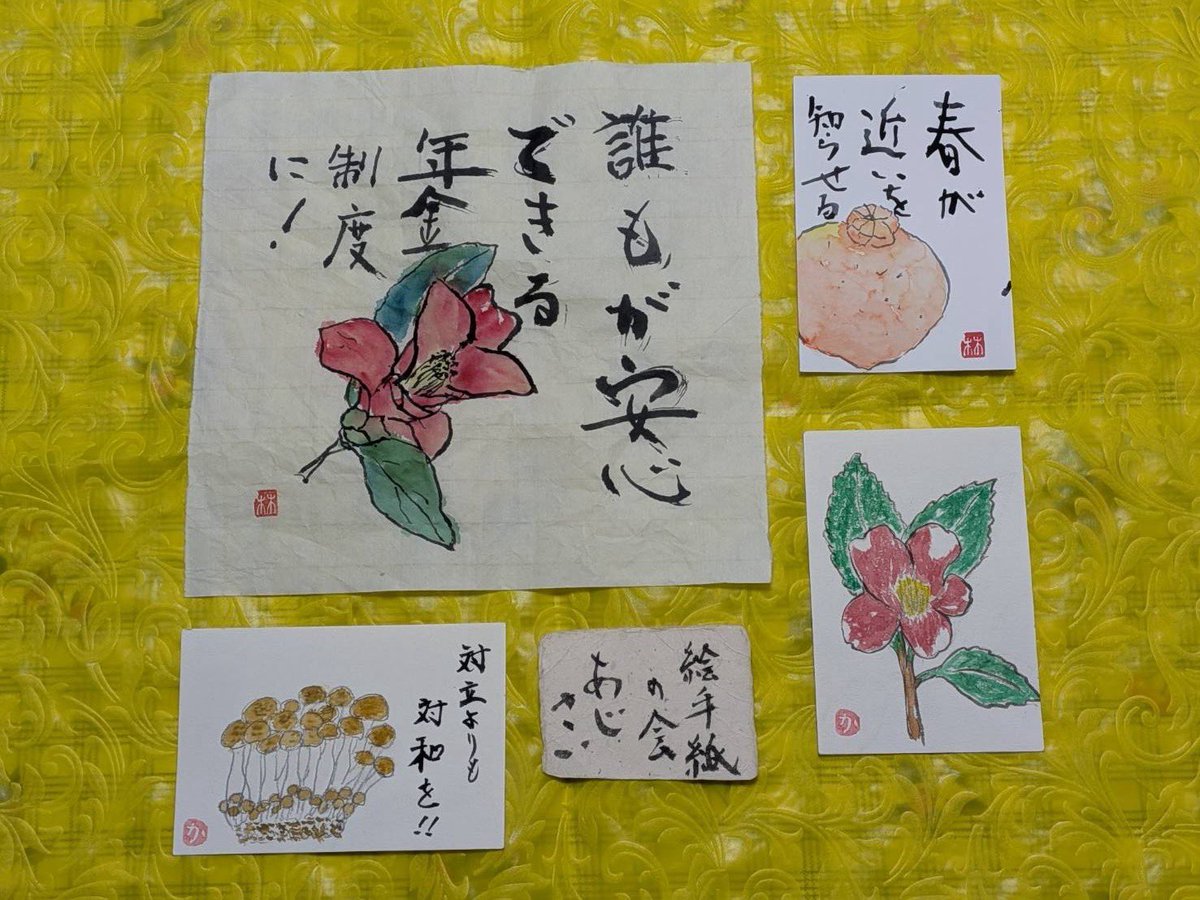 誰もが安心
できる
年金
制度
に!
林
春が
近いを
知らせる
林
対立よりも
対和を!!
か
絵手紙
の会
あじ
さい
か